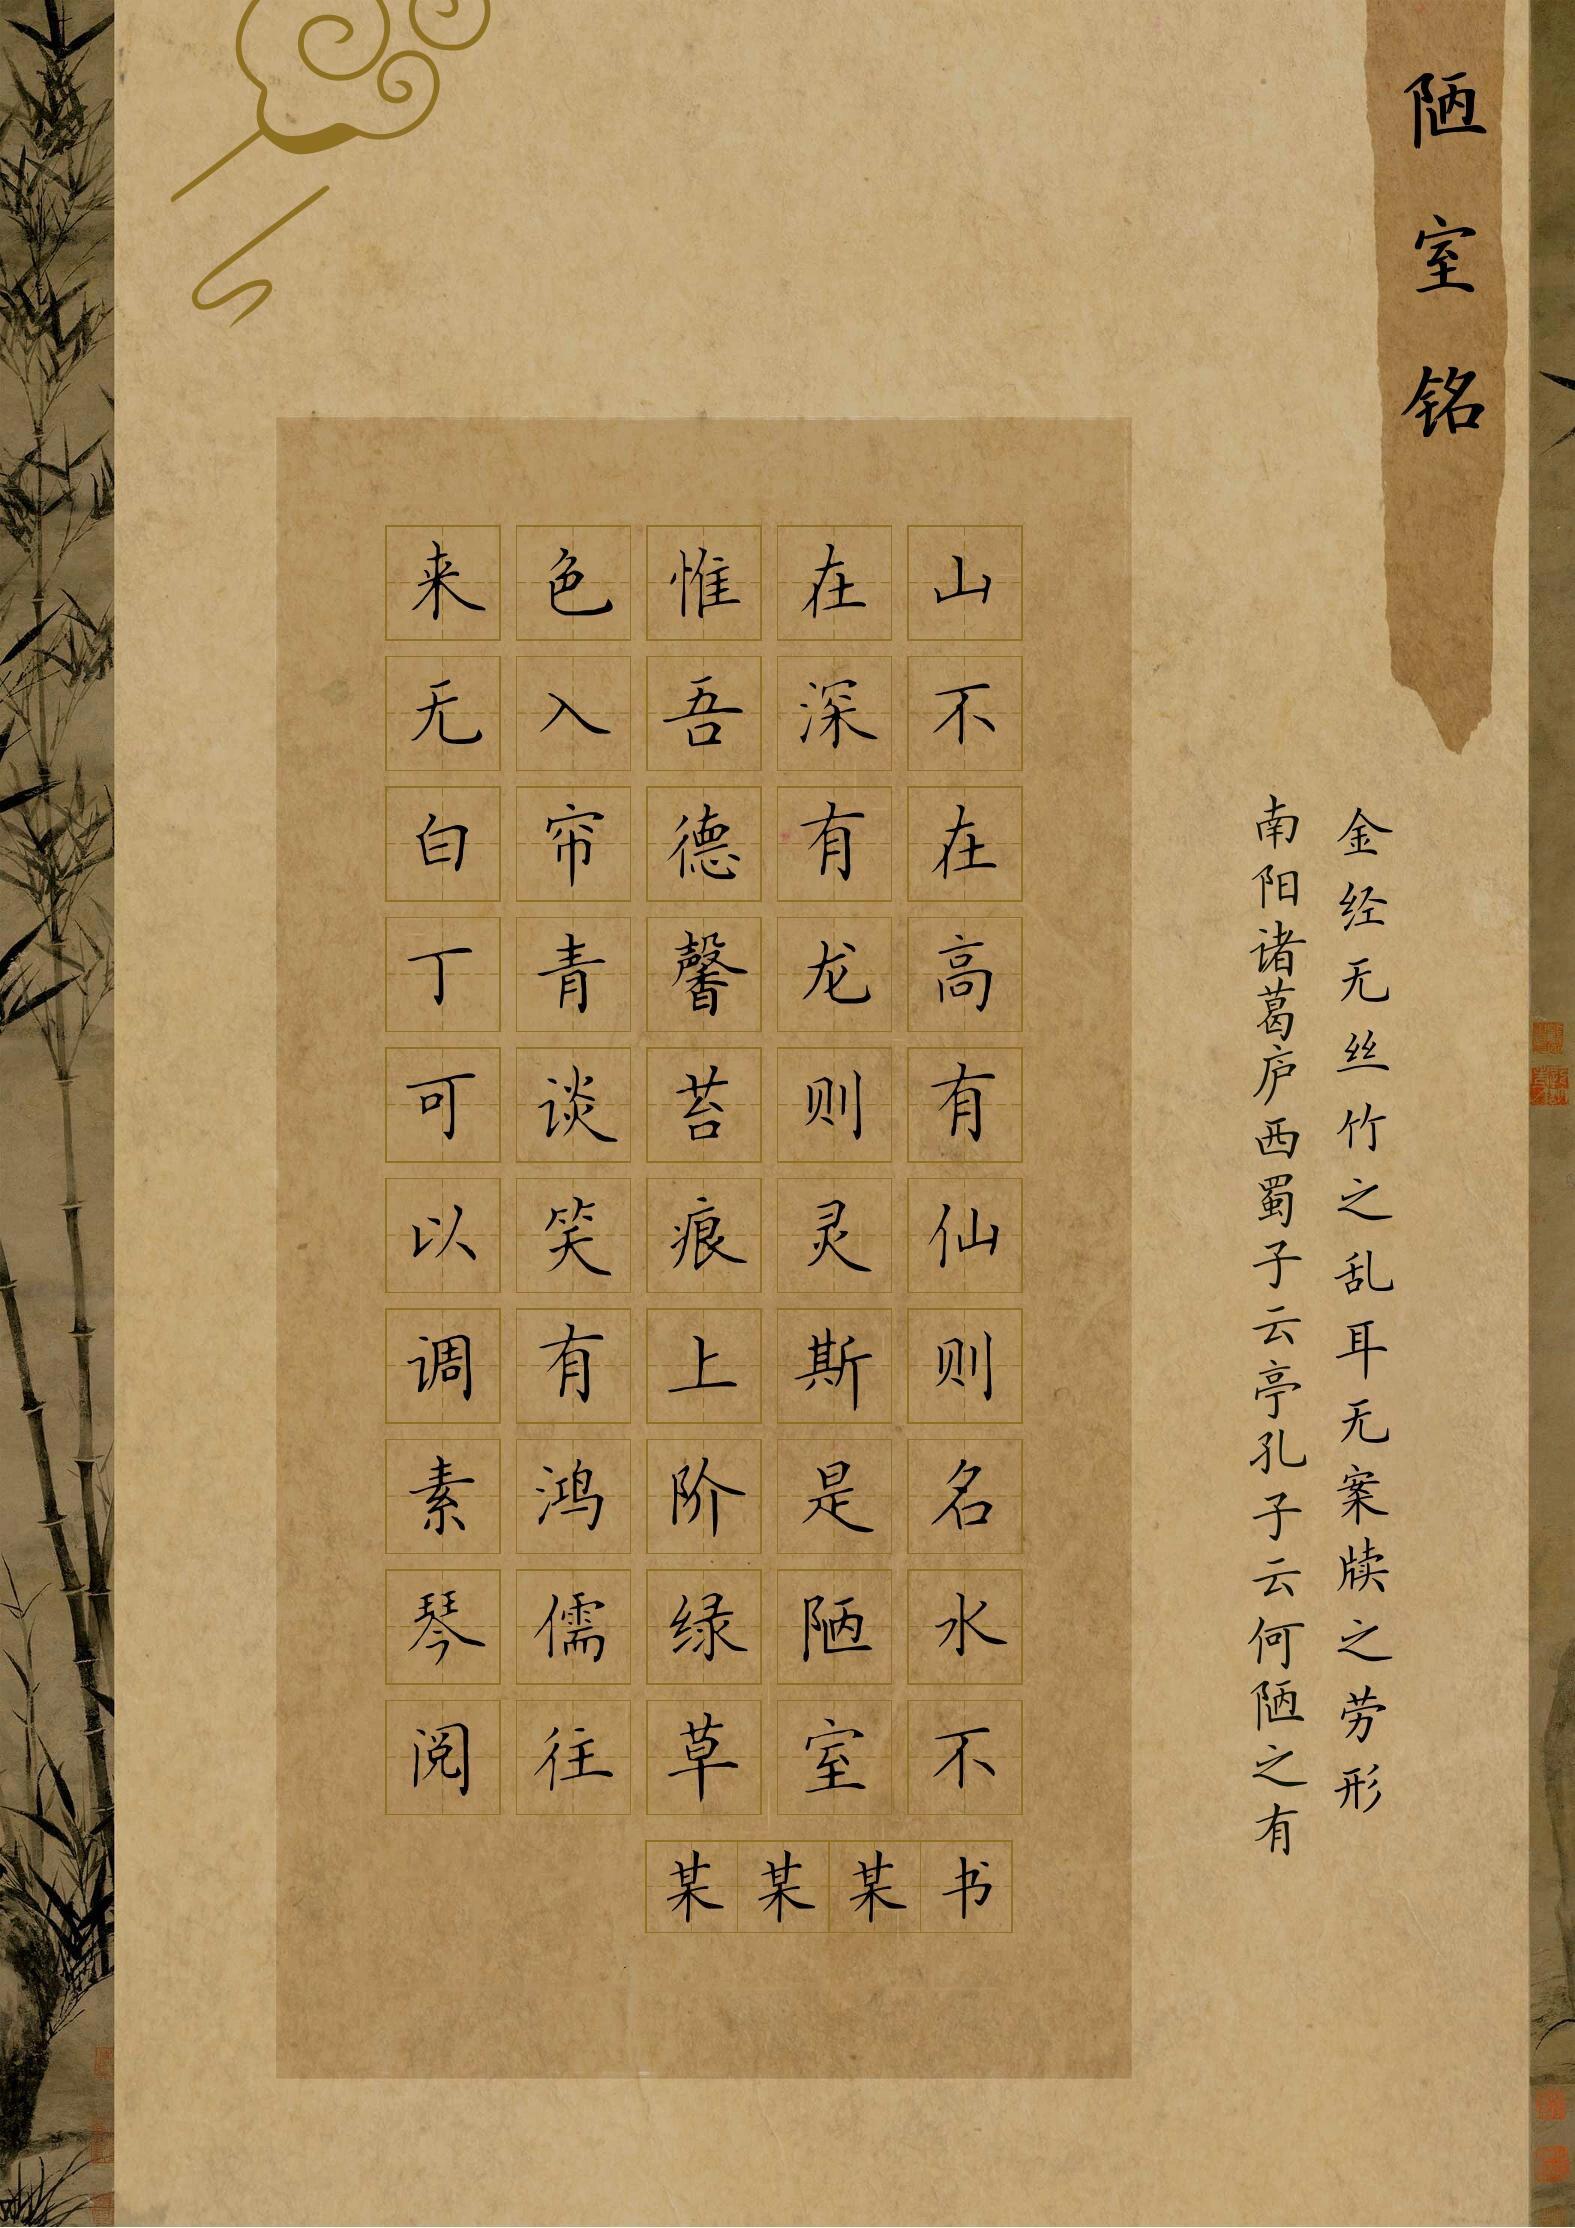 陋室铭
山不在高有仙则名水不
在深有龙则灵斯是陋室
惟吾德馨苔痕上阶绿草
色入帘青谈笑有鸿儒往
来无白丁可以调素琴阅
金经无丝竹之乱耳无案牍之劳形
南阳诸葛庐西蜀子云亭孔子云何陋之有
某某某书